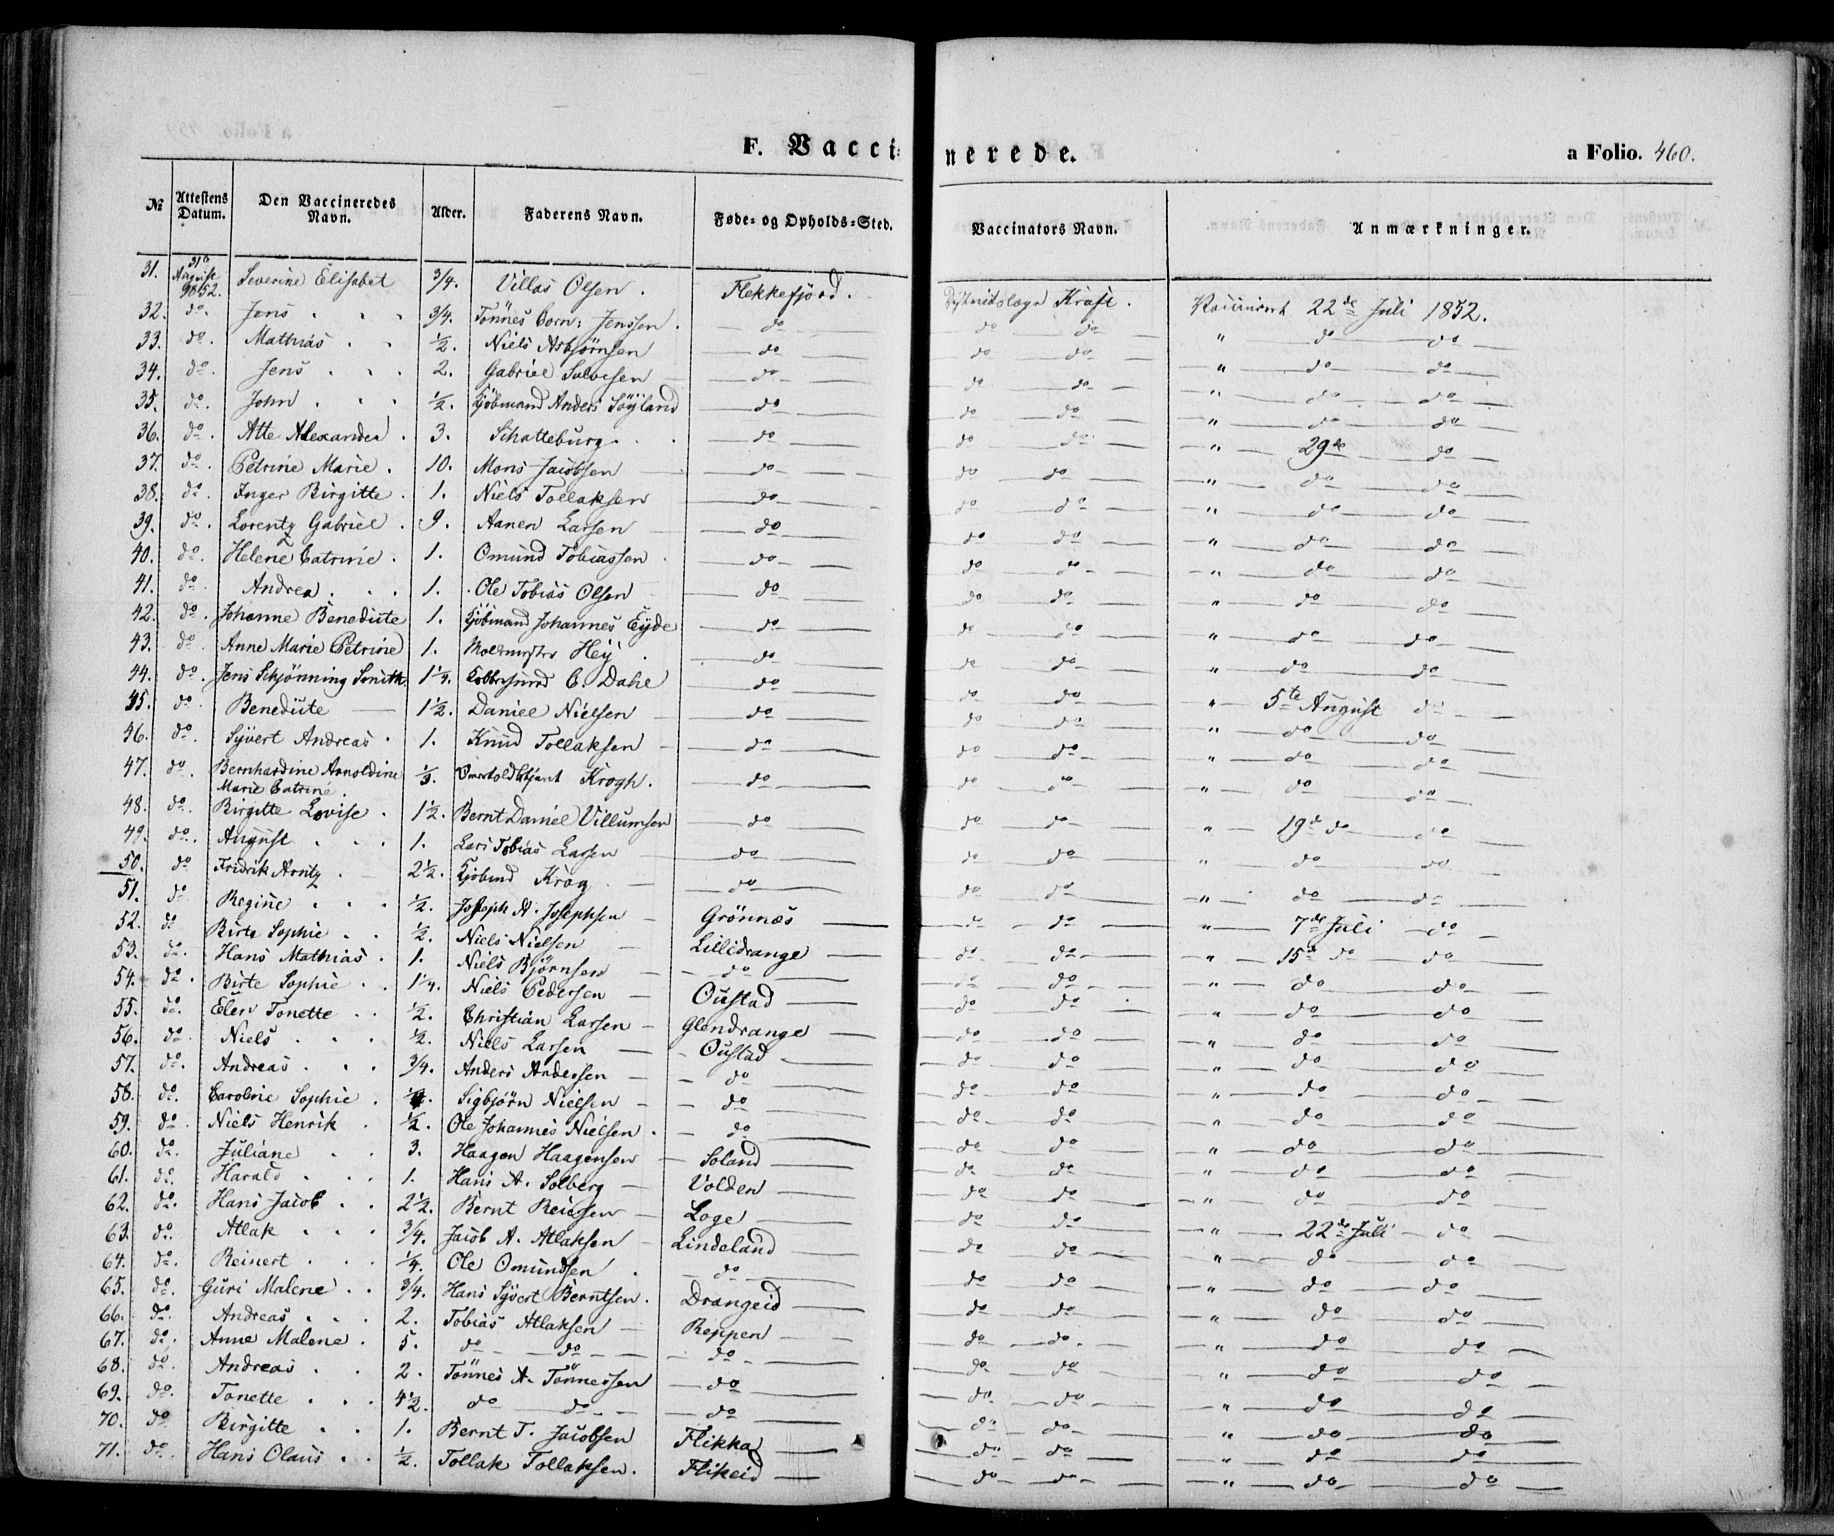 F. Vaccinerede. a Folio. 460.
№ Attestens Datum. Den Vaccineredes Navn. Alder. Faderens Navn. Føde- og Opholds-Sted. Vaccinators Navn. Anmærkninger.
31. 31te August 1852. Severine Elisabet 3/4. Villas Olsen. Flekkefjord. Distriktslæge Kraft. Vaccineret 22de Juli 1852.
32. do. Jens 3/4. Tönnes Corn: Jenssen. do do do " do do
33. do. Mathias 1/2. Niels Asbjörnsen do do do " do do
34. do. Jens 2. Gabriel Salvesen do do do " do do
35. do. John 1/2. Kjöbmand Anders Söyland do do do " do do
36. do. Atte Alexandra 3. Schatteburg do do do " 29de do
37. do. Petrine Marie. 10. Mons Jacobsen do do do " do do
38. do. Inger Birgitte 1. Niels Tollaksen do do do " do do
39. do. Lorentz Gabriel 9. Aanen Larsen do do do " do do
40. do. Helene Catrine 1. Omund Tobiassen do do do " do do
41. do. Andrea 1. Ole Tobias Olsen do do do " do do
42. do. Johanne Benedicte 1. Kjöbmand Johannes Eyde do do do " do do
43. do. Anne Marie Petrine 1. Hey do do do " do do
44. do. Jens Schjönning Smith 1 1/4. C. Dahl do do do " 5te August do
45. do. Benedicte 1 1/2. Daniel Nielsen do do do " do do
46. do. Syvert Andreas 1. Knud Tollaksen do do do " do do
47. do. Bernhardine Arnoldine Marie Catrine. 1/3. Krogh. do do do " do do
48. do. Birgitte Lovise 1 1/2. Bernt Daniel Villumsen do do do " 19de do do
49. do. August 1. Lars Tobias Larsen do do do " do do
50. do Fridrik Arntz 2 1/2. Kjöbmd Krog do do do " do do
51. do Regine 1/2. Joseph A. Josephsen Grönnæs do do " 7de Juli do
52. do Birte Sophie 1/2. Niels Nielsen Lilledrange do do " 15de do do
53. do. Hans Mathias 1. Niels Björnsen do do do " do do
54. do. Birte Sophie 1 1/4. Niels Pedersen Oustad do do " do do
55. do. Elen Tonette 1/2. Christian Larsen Glendrange do do " do do
56. do. Niels 1/2. Niels Larsen Oustad do do " do do
57. do. Andreas 3/4. Anders Andersen do do do " do do
58. do. Caroline Sophie Sigbjörn Nielsen do do do " do do
59. do. Niels Henrik 1/2. Ole Johannes Nielsen do do do " do do
60. do. Juliane 3. Haagen Haagensen Soland do do " do do
61. do. Harald 1. Hans A. Solberg Volden do do " do do
62. do. Hans Jacob 2 1/2. Bernt Reiersen Loge do do " 22de Juli do
63. do. Atlak 3/4. Jacob A. Atlaksen Lindeland do do " do do
64. do. Reinert 1/4. Ole Omundsen do do do " do do
65. do. Guri Malene 3/4. Hans Syvert Berntsen. Drangeid do do " do do
66. do. Andreas 2. Tobias Atlaksen Reppen do do " do do
67. do. Anne Malene 5. do do do do do " do do
68. do. Andreas 2. Tönnes A. Tönnessen do do do " do do
69. do. Tonette 4 1/2. do do do do do " do do
70. do Birgitte 1. Bernt T. Jacobsen Flikka do do " do do
71. do. Hans Olaus 1/2. Tollak Tollaksen. Flikeid do do " do do